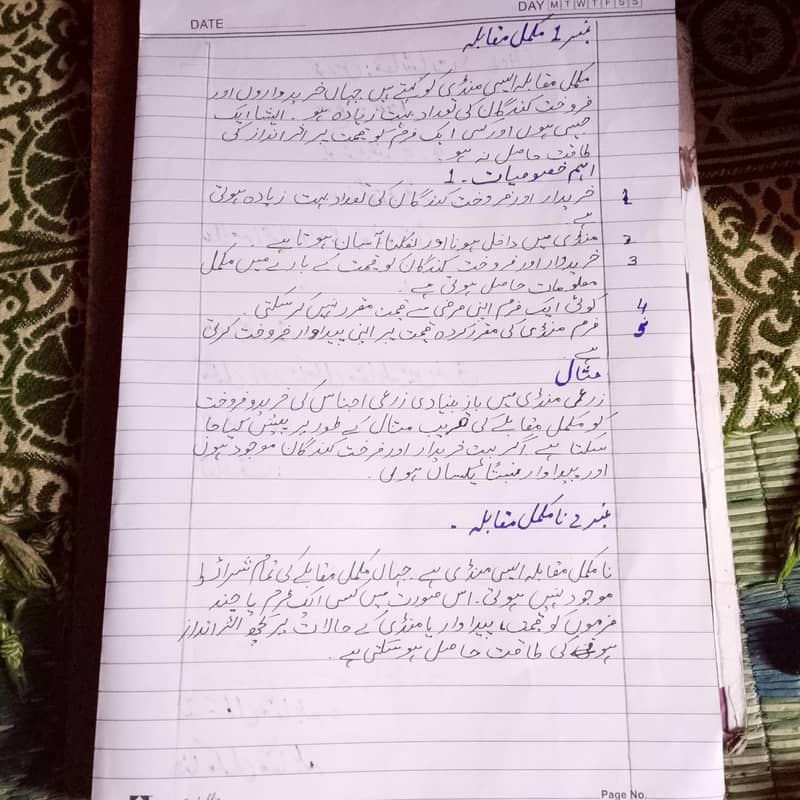 DATE
DAY M T W T F S S
نمبر 1 مکمل مقابلہ
مکمل مقابلہ ایسی منڈی کو کہتے ہیں جہاں خریداروں اور
فروخت کنندگان کی تعداد بہت زیادہ ہو۔ اشیا ایک
جیسی ہوں اور کسی ایک فرم کو قیمت پر اثر انداز کی
طاقت حاصل نہ ہو۔
اہم خصوصیات۔ 1
1 خریدار اور فروخت کنندگان کی تعداد بہت زیادہ ہوتی
ہے
2 منڈی میں داخل ہونا اور نکلنا آسان ہوتا ہے
3 خریدوار اور فروخت کنندگان کو قیمت کے بارے میں مکمل
معلومات حاصل ہوتی ہے۔
4 کوئی ایک فرم اپنی مرضی سے قیمت مقرر نہیں کر سکتی۔
5 فرم منڈی کی مقرر کردہ قیمت پر اپنی پیداوار فروخت کرتی
ہے
مثال
زرعی منڈی میں بنیادی زرعی اجناس کی خرید و فروخت
کو مکمل مقابلے کی قریب مثال کے طور پر پیش کیا جا
سکتا ہے اگر بہت خریدار اور فرخت کنندگان موجود ہوں
اور پیداوار یکساں ہو۔
نمبر 2 نامکمل مقابلہ۔
نامکمل مقابلہ ایسی منڈی ہے جہاں مکمل مقابلے کی تمام شرائط
موجود نہیں ہوتی۔ اس صورت میں کسی ایک فرم یا چند
فرموں کو قیمت، پیداوار یا منڈی کے حالات پر کچھ اثر انداز
کی طاقت حاصل ہو سکتی ہے۔
Page No.